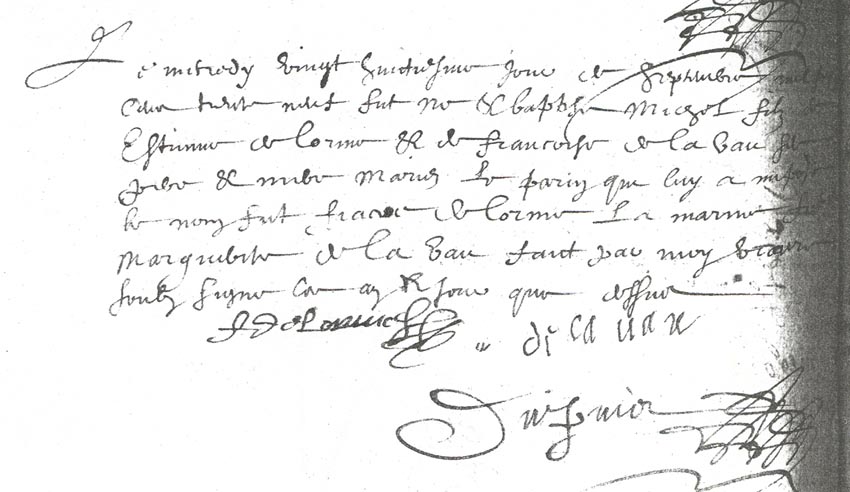 Le mecredy vingt huictiesme jour de Septembre mil
cens trente neuf fut ne & baptise Michel filz
Estienne de lorme & de francoise de la vau ses
pere & mere Mariez Le parin que luy a impose
le nom fut francois de lorme La marine
Marguerite de la vau faict par moy vicaire
soubz signe les an & jour que dessus
F Delorme de la vau